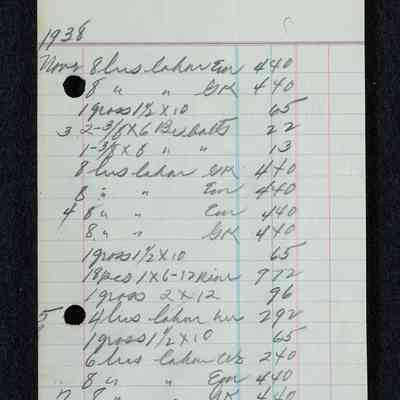 1938
Nov 2 8 hrs labor Em 440
8 " " GK 440
1 gross 1½ x 10 65
3 2-3/8 x 6 Bx bolts 22
1-3/8 x 8 " " 13
8 hrs labor GK 440
8 " " Em 440
4 8 " " Em 440
8 " " GK 440
1 gross 1½ x 10 65
18 pcs 1 x 6-12 Pine 972
1 gross 2 x 12 96
5 4 hrs labor 292
1 gross 1½ x 10 65
6 hrs labor 240
" 8 " " Em 440
8 " " GK 440